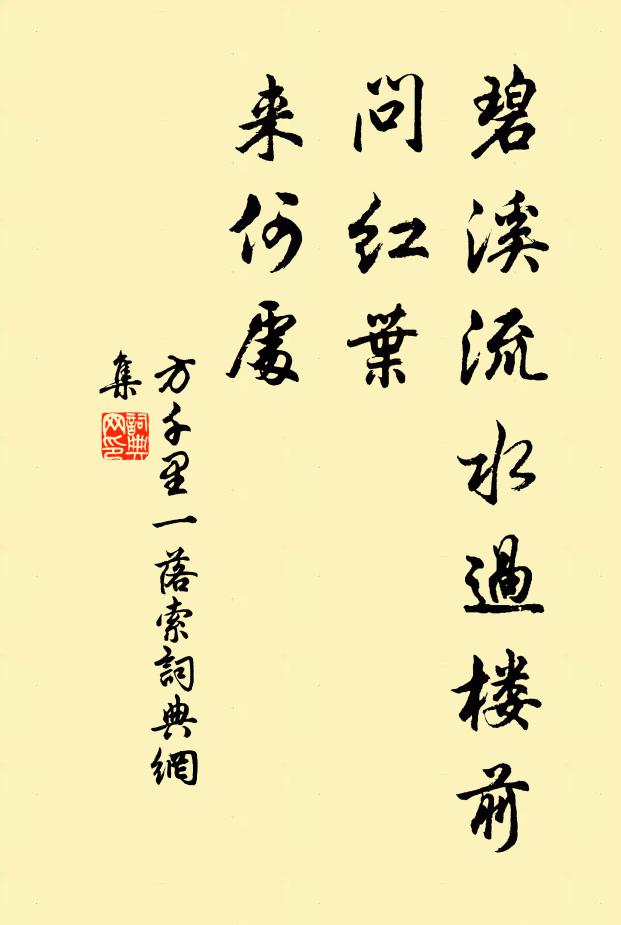 碧溪流水過楼前
問紅葉
来何處
方千里一落索詞典網
集
詞典
网印